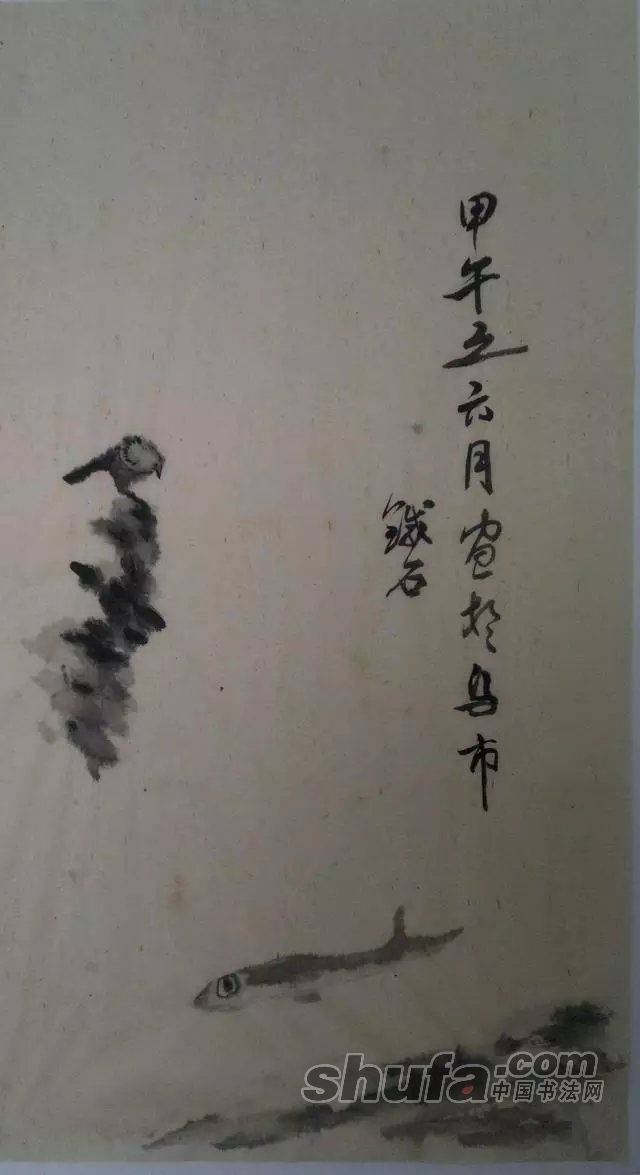 甲午之六月画於乌市
鐵石
shufa.com
中国书法网